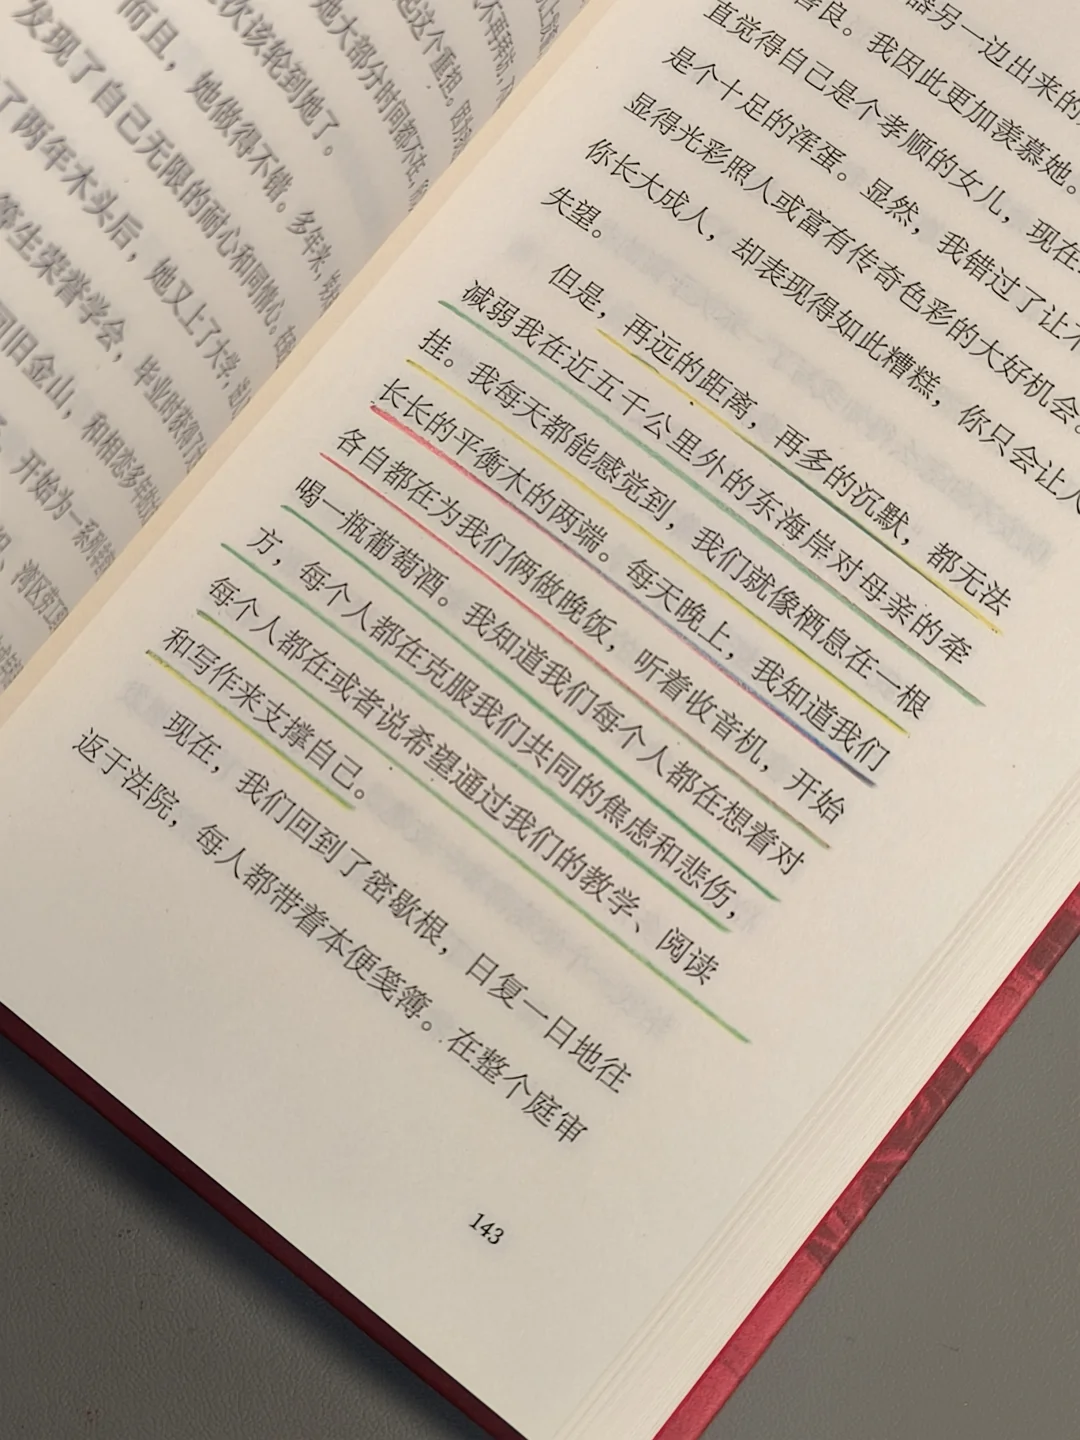 而且，她做得不错。多年来，
发现了自己无限的耐心和同情心。
了两年木头后，她又上了大学，
等生荣誉学会，毕业时获得了
回旧金山，和相恋多年
开始为一系列
次该轮到她了。
她大部分时间都不在，
起这个重担。因为
不再拜访，
器另一边出来的
善良。我因此更加羡慕她。
直觉得自己是个孝顺的女儿，现在
是个十足的浑蛋。显然，我错过了让
显得光彩照人或富有传奇色彩的大好机会。
你长大成人，却表现得如此糟糕，你只会让人
失望。
但是，再远的距离，再多的沉默，都无法
减弱我在近五千公里外的东海岸对母亲的牵
挂。我每天都能感觉到，我们就像栖息在一根
长长的平衡木的两端。每天晚上，我知道我们
各自都在为我们俩做晚饭，听着收音机，开始
喝一瓶葡萄酒。我知道我们每个人都在想着对
方，每个人都在克服我们共同的焦虑和悲伤，
每个人都在或者说希望通过我们的教学、阅读
和写作来支撑自己。
现在，我们回到了密歇根，日复一日地往
返于法院，每人都带着本便笺簿。在整个庭审
143